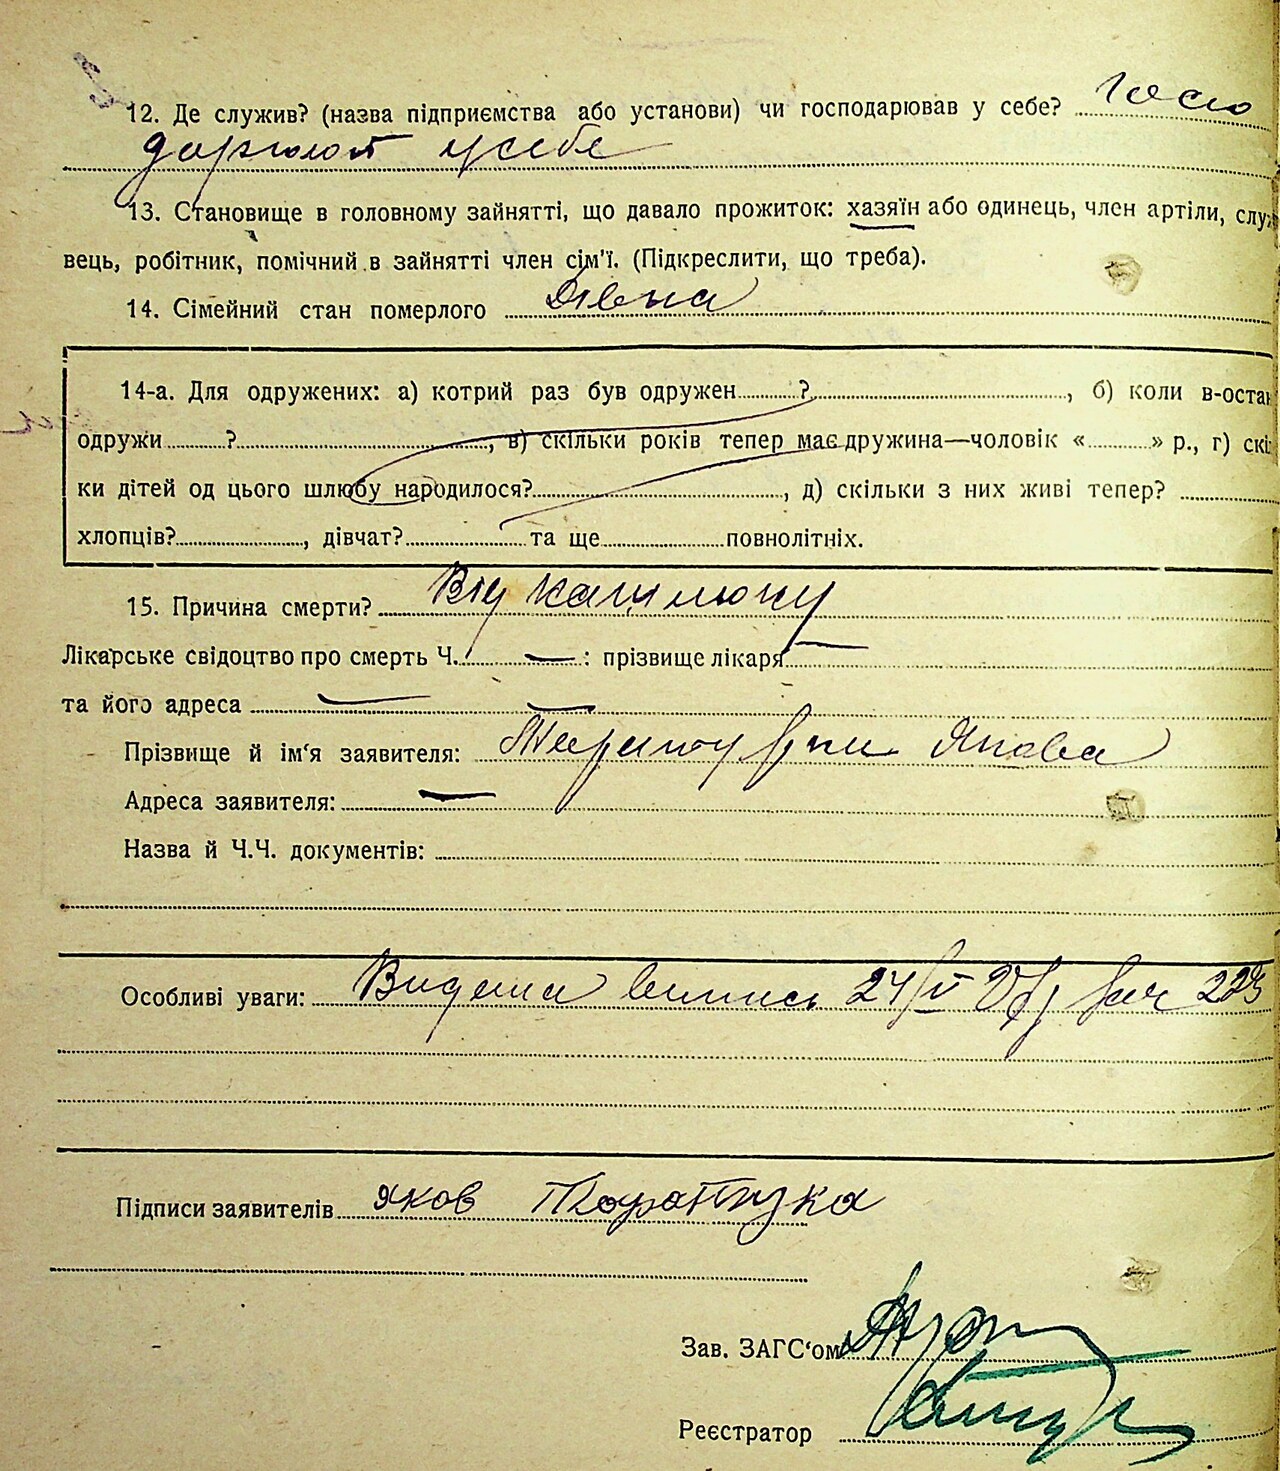 12. Де служив? (назва підприємства або установи) чи господарював у себе? Госпо
дарював у себе
13. Становище в головному зайнятті, що давало прожиток: хазяїн або одинець, член артіли, служ
вець, робітник, помічний в зайнятті член сім'ї. (Підкреслити, що треба).
14. Сімейний стан померлого Дівка
14-а. Для одружених: а) котрий раз був одружен ?, б) коли в-остан
одружи ?, в) скільки років тепер має дружина—чоловік « » р., г) скі
ки дітей од цього шлюбу народилося?, д) скільки з них живі тепер?
хлопців?, дівчат? та ще повнолітніх.
15. Причина смерти? Від кашлюку
Лікарське свідоцтво про смерть Ч. — : прізвище лікаря —
та його адреса — —
Прізвище й ім'я заявителя: Якова
Адреса заявителя: —
Назва й Ч.Ч. документів:
Особливі уваги: Видана 24/V
Підписи заявителів Яков
Зав. ЗАГС'ом
Реєстратор